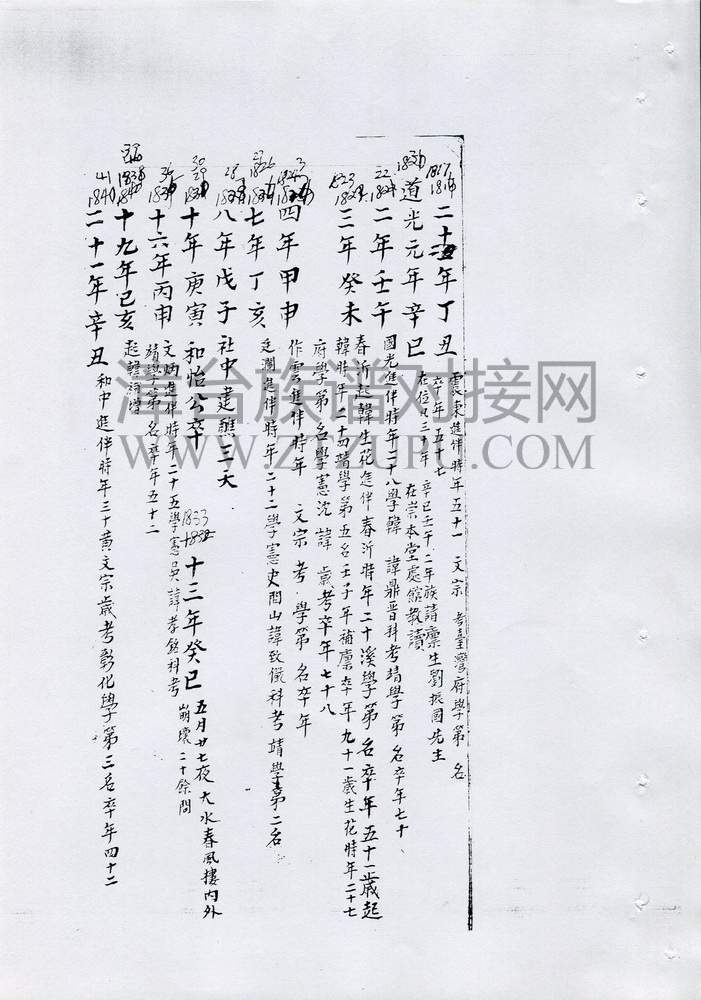 二十五年丁丑 震東進伴時年五十一 文宗 考臺灣府學第 名
卒年五十七
道光元年辛巳 在位凡三十年 辛巳壬午二年族請廩生劉振國先生
在崇本堂處館教讀
二年壬午 國光進伴時年二十八學韓 諱鼎晋科考靖學第 名卒年七十
三年癸未 春沂起韓生花進伴春沂時年二十溪學第 名卒年五十一歲起
韓時年二十四靖學第五名壬子年補廩卒年九十一歲生花時年二十七
府學第 名學憲沈 諱 歲考卒年七十八
四年甲申 作雲進伴時年 文宗 考 學第 名卒年
七年丁亥 廷瀾進伴時年二十二學憲史閭山諱致儼科考靖學第二名
八年戊子 社中建醮三天
十年庚寅 和怡公卒
1833
十三年癸巳 五月廿七夜大水春風樓內外
崩壞二十餘間
十六年丙申 文炳進伴時年二十五學憲吳諱孝銘科考
靖學第 名卒年五十二
十九年己亥 起韓補增
二十一年辛丑 和中進伴時年三十黃文宗歲考彰化學第三名卒年四十二
台族谱对接网
WWW.ZTZUPU.COM